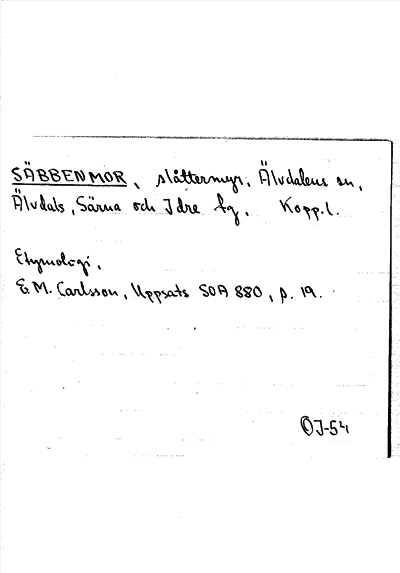 SÄBBENMOR, slåttermyr, Älvdalens sn,
Älvdals, Särna och Idre tg, Kopp.l.
Etymologi,
E.M. Carlsson, Uppsats SOA 880, p. 19.
ÖJ-54